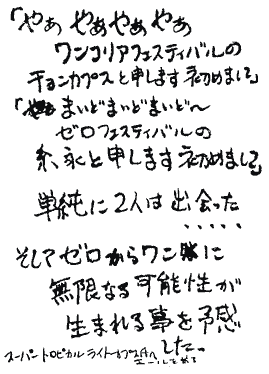 「やぁ やぁやぁ やぁ
ワンコリアフェスティバルの
チョンカプスと申します 初めまして」
「まいどまいどまいど〜
ゼロフェスティバルの
糸永と申します 初めまして」
単純に2人は出会った
・・・・・
そしてゼロからワンに
無限なる可能性が
生まれる事を予感
した。
スーパートロピカルライト